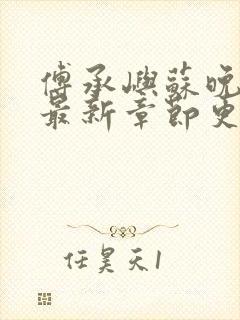 傅承屿蘇晚
最新章節更
任昊天1